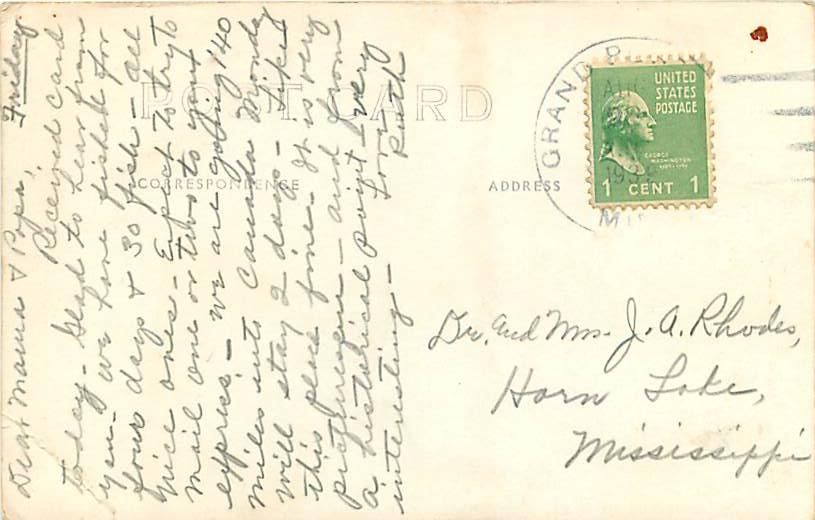 Friday
Dear Mama & Papa,
Received card
today - Glad to hear from
you - We have fished for
four days & 30 fish - all
nice ones - Expect to try to
mail one or two to you
express. - We are going 40
miles into Canada Monday
will stay 2 days - Like
this place fine. It is very
picturesque - and from
a historical point very
interesting -
Love
Ruth
POST CARD
CORRESPONDENCE
ADDRESS
GRAND
AUG
193
UNITED
STATES
POSTAGE
GEORGE
WASHINGTON
1 CENT 1
Dr. and Mrs. J. A. Rhodes,
Horn Lake,
Mississippi